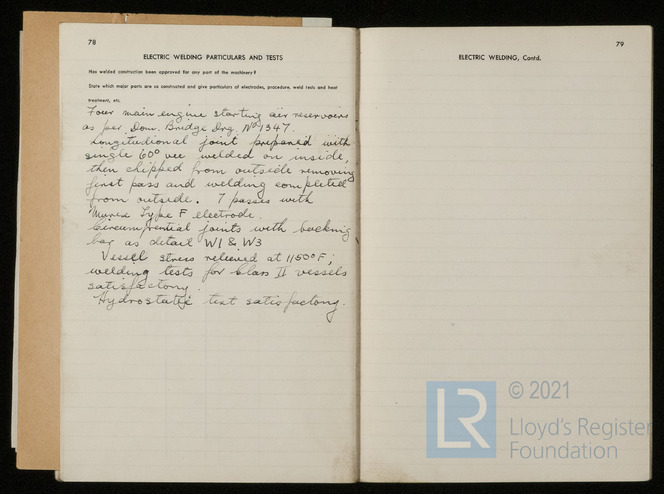 78
ELECTRIC WELDING PARTICULARS AND TESTS
Has welded construction been approved for any part of the machinery?
State which major parts are so constructed and give particulars of electrodes, procedure, weld tests and heat
treatment, etc
Four main engine starting air reservoirs
as per Dom. Bridge Drg. No 1347.
Longitudional joint prepared with
single 60° vee welded on inside,
then chipped from outside removing
first pass and welding completed
from outside. 7 passes with
Murex Type F electrode.
Circumfrential joints with backing
bar as detail W1 & W3
Vessel stress relieved at 1150°F;
welding tests for Class II vessels
satisfactory.
Hydrostatic test satisfactory.
79
ELECTRIC WELDING, Contd.
LR
© 2021
Lloyd's Register
Foundation